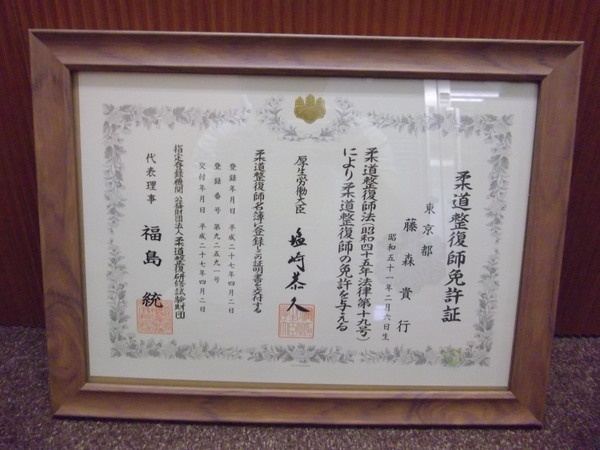 柔道整復師免許証
東京都
藤森貴行
昭和五十一年二月六日生
柔道整復師法(昭和四十五年法律第十九号)
により柔道整復師の免許を与える
厚生労働大臣 塩崎恭久
柔道整復師名簿に登録しこの証明書を交付する
登録年月日 平成二十七年四月二日
登録番号 第九二五九一号
交付年月日 平成二十七年四月二日
指定登録機関 公益財団法人柔道整復研修試験財団
代表理事 福島統